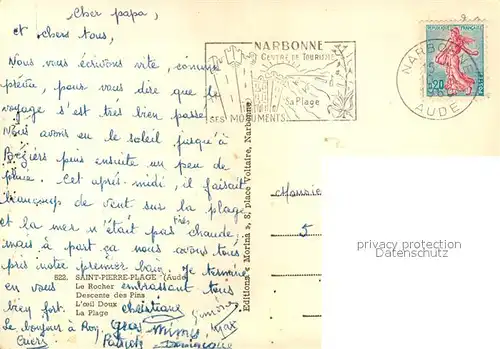 cher papa,
et chers tous,
Nous vous écrivons vite, comme
prévu, pour vous dire que le
voyage s'est très bien passé.
Nous avons eu le soleil jusqu'à
Béziers puis ensuite un peu de
pluie. Cet après-midi, il faisait
beaucoup de vent sur la plage
et la mer n'était pas très chaude
mais à part ça nous avons tous
pris notre premier bain. Je termine
en vous embrassant tous
bien fort. christiane
Le bonjour à Roy
Patrick
822. SAINT-PIERRE-PLAGE (Aude)
Le Rocher
Descente des Pins
L'œil Doux
La Plage
Editions « Morina », 8, place Voltaire, Narbonne
NARBONNE
CENTRE DE TOURISME
Sa Plage
SES MONUMENTS
NARBONNE
AUDE
REPUBLIQUE FRANÇAISE
0,20
POSTES
Monsieur
5
privacy protection
Privatsphärenschutz